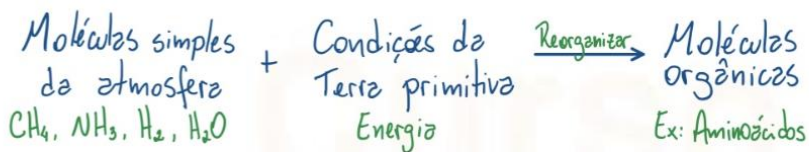 Moléculas simples da atmosfera
CH₄, NH₃, H₂, H₂O
+
Condições da Terra primitiva
Energia
Reorganizar
Moléculas orgânicas
Ex: Aminoácidos